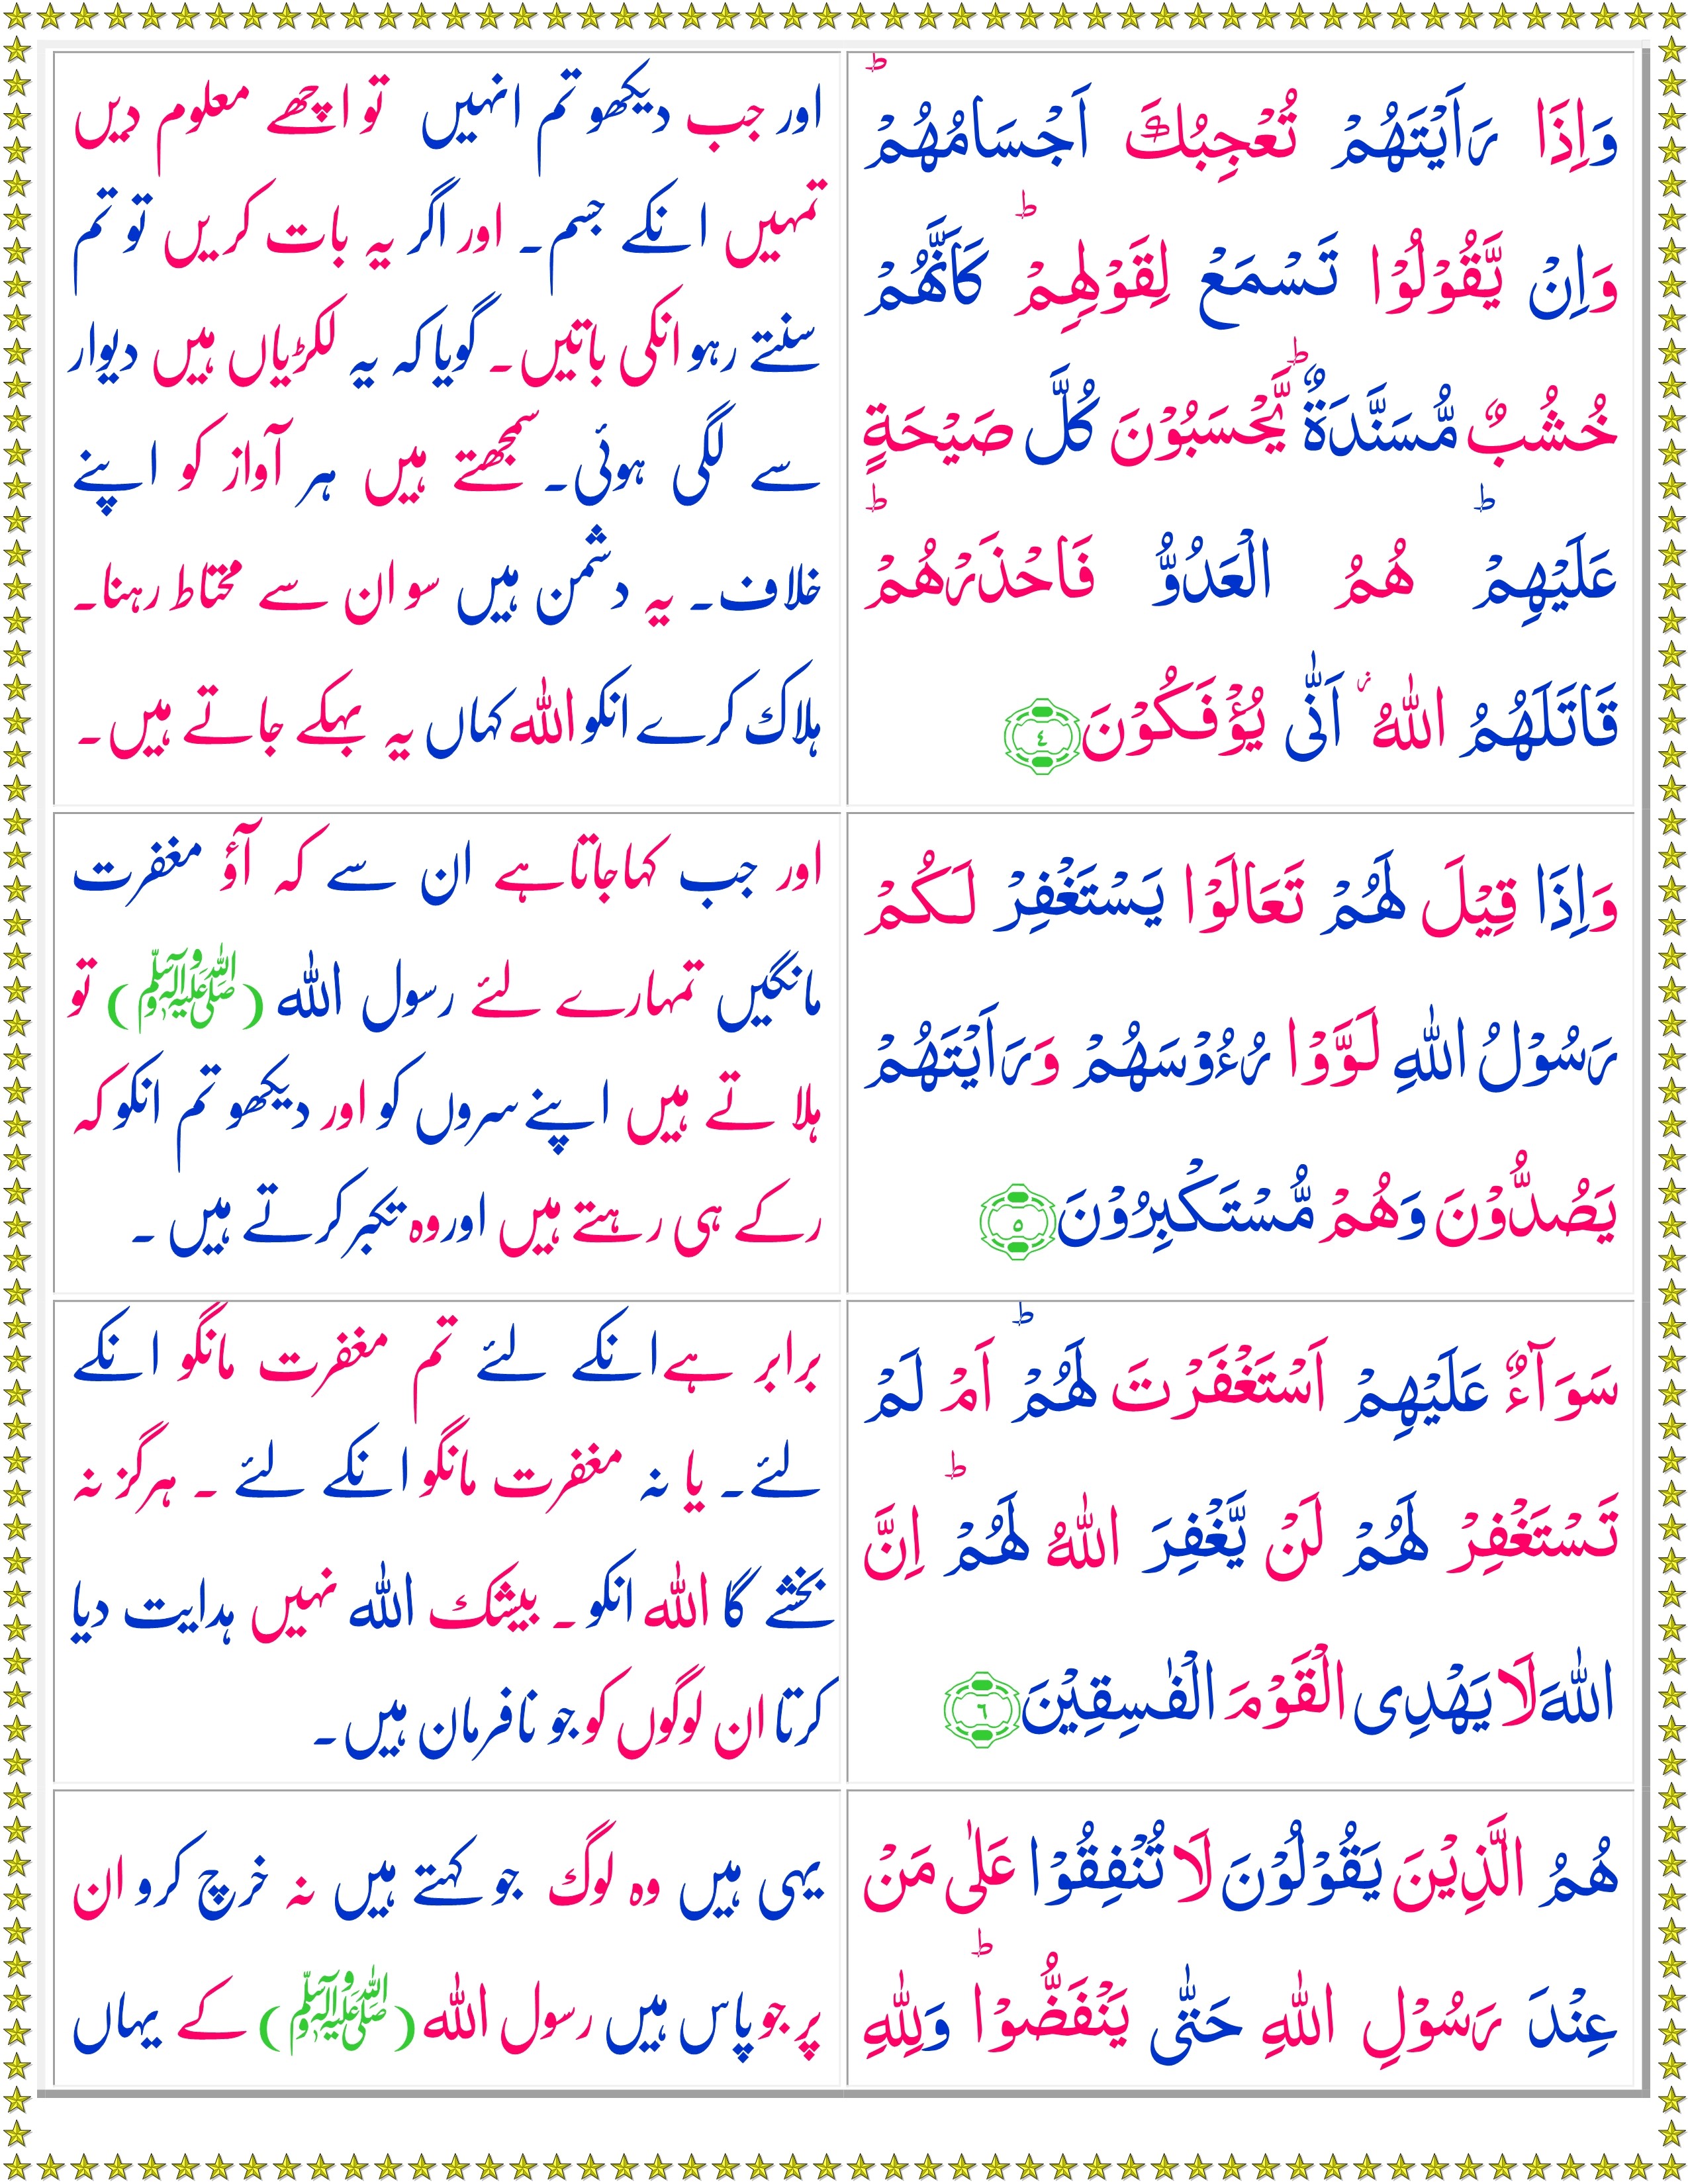 وَاِذَا رَاَيْتَهُمْ تُعْجِبُكَ اَجْسَامُهُمْ ؕ
وَاِنْ يَّقُوْلُوْا تَسْمَعْ لِقَوْلِهِمْ ؕ كَاَنَّهُمْ
خُشُبٌ مُّسَنَّدَةٌ ؕ يَّحْسَبُوْنَ كُلَّ صَيْحَةٍ
عَلَيْهِمْ ؕ هُمُ الْعَدُوُّ فَاحْذَرْهُمْ ؕ
قَاتَلَهُمُ اللّٰهُ ۫ اَنّٰى يُؤْفَكُوْنَ ﴿٤﴾
اور جب دیکھو تم انہیں تو اچھے معلوم دیں
تمہیں انکے جسم۔ اور اگر یہ بات کریں تو تم
سنتے رہو انکی باتیں۔ گویا کہ یہ لکڑیاں ہیں دیوار
سے لگی ہوئی۔ سمجھتے ہیں ہر آواز کو اپنے
خلاف۔ یہ دشمن ہیں سو ان سے محتاط رہنا۔
ہلاک کرے انکو اللہ کہاں یہ بہکے جاتے ہیں۔
وَاِذَا قِيْلَ لَهُمْ تَعَالَوْا يَسْتَغْفِرْ لَكُمْ
رَسُوْلُ اللّٰهِ لَوَّوْا رُءُوْسَهُمْ وَرَاَيْتَهُمْ
يَصُدُّوْنَ وَهُمْ مُّسْتَكْبِرُوْنَ ﴿٥﴾
اور جب کہا جاتا ہے ان سے کہ آؤ مغفرت
مانگیں تمہارے لئے رسول اللہ (ﷺ) تو
ہلا تے ہیں اپنے سروں کو اور دیکھو تم انکو کہ
رکے ہی رہتے ہیں اور وہ تکبر کرتے ہیں ۔
سَوَآءٌ عَلَيْهِمْ اَسْتَغْفَرْتَ لَهُمْ ؕ اَمْ لَمْ
تَسْتَغْفِرْ لَهُمْ لَنْ يَّغْفِرَ اللّٰهُ لَهُمْ ؕ اِنَّ
اللّٰهَ لَا يَهْدِى الْقَوْمَ الْفٰسِقِيْنَ ﴿٦﴾
برابر ہے انکے لئے تم مغفرت مانگو انکے
لئے۔ یا نہ مغفرت مانگو انکے لئے ۔ ہرگز نہ
بخشے گا اللہ انکو ۔ بیشک اللہ نہیں ہدایت دیا
کرتا ان لوگوں کو جو نافرمان ہیں۔
هُمُ الَّذِيْنَ يَقُوْلُوْنَ لَا تُنْفِقُوْا عَلٰى مَنْ
عِنْدَ رَسُوْلِ اللّٰهِ حَتّٰى يَنْفَضُّوْا ؕ وَلِلّٰهِ
یہی ہیں وہ لوگ جو کہتے ہیں نہ خرچ کرو ان
پر جو پاس ہیں رسول اللہ (ﷺ) کے یہاں